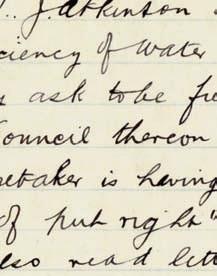 J. Atkinson
ciency of water
ask to be fu
Council thereon
etaker is having
of put right"
also read lett